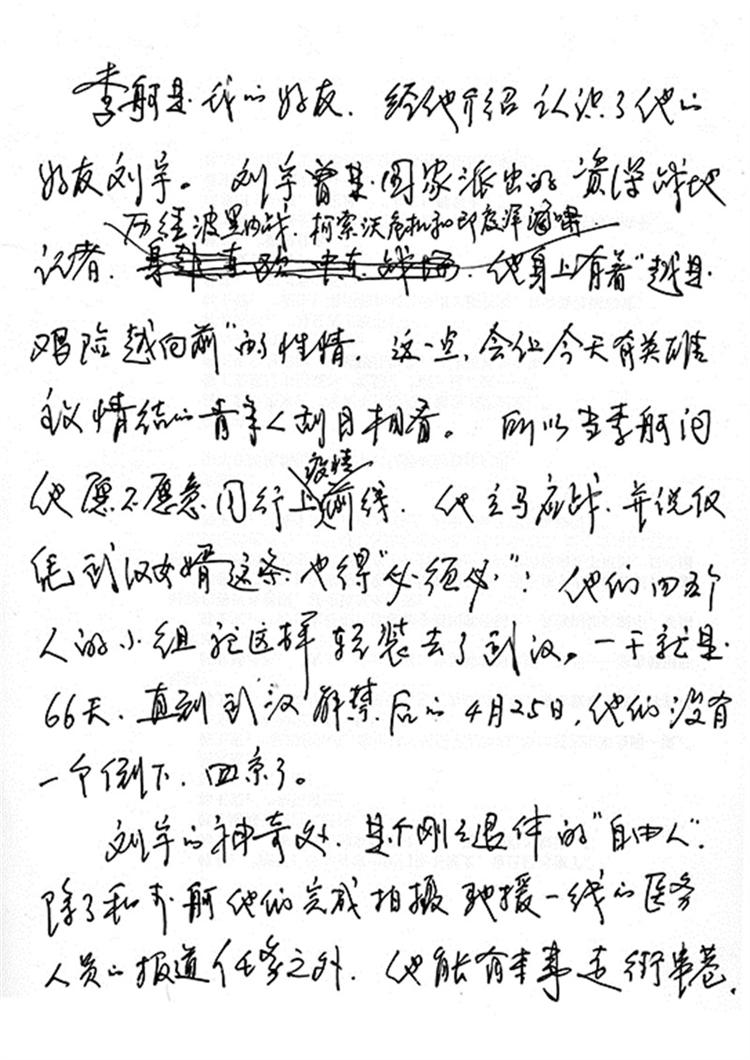 李舸是我的好友．经他介绍认识了他的
好友刘宇。刘宇曾是国家派出的资深战地
历经波黑内战、柯索沃危机和印度洋海啸
记者．他身上有着“越是
艰险越向前”的性情．这一点，会让今天有英雄
主义情结的青年人刮目相看。所以当李舸问
疫情
他愿不愿意同行上前线．他立马应战．并说仅
凭武汉女婿这条也得“必须必”！他们四五个
人的小组就这样轻装去了武汉。一干就是
66天．直到武汉解禁后的4月25日，他们没有
一个倒下．回京了。
刘宇的神奇处．是个刚刚退休的“自由人”．
除了和李舸他们完成拍摄驰援一线的医务
人员的报道任务之外．他能有本事走街串巷．